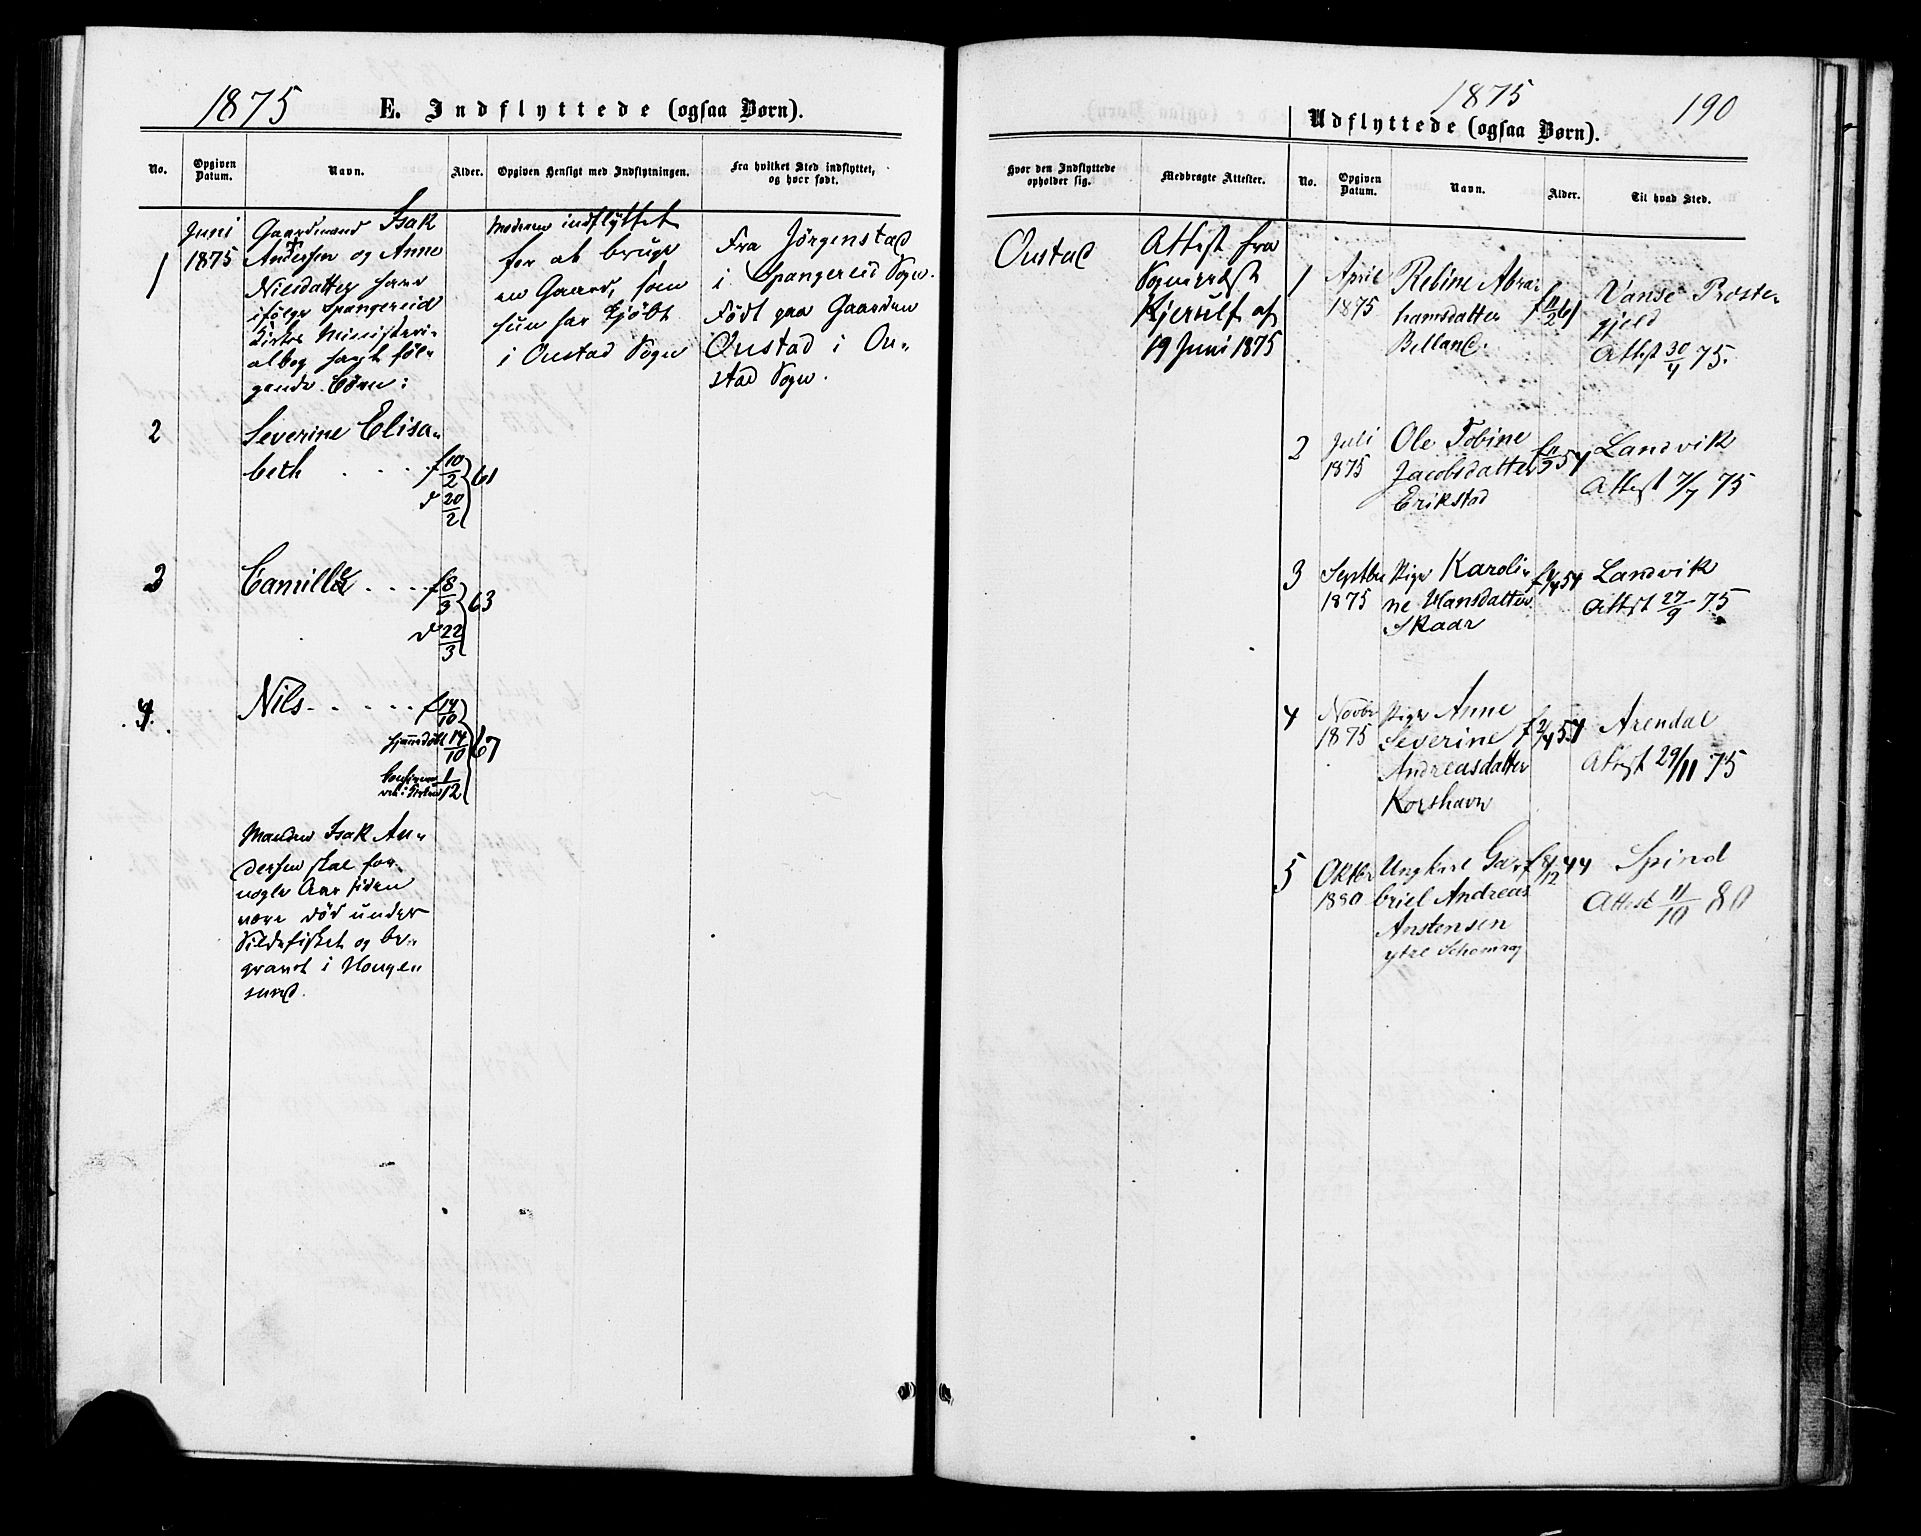 1875
E. Indflyttede (ogsaa Børn).
No.
Opgiven Datum.
Navn.
Alder.
Opgiven Hensigt med Indflytningen.
Fra hvilket Sted indflyttet, og hvor født.
1
Juni
1875
Gaardmand Isak
Andersen og Anne
Nilsdatter have
ifølge Spangereid
Kirkes Ministeri-
albog havt føl-
gende Børn:
Moderen indflyttet
for at bruge
en Gaard, som
hun har kjøbt
i Oustad Sogn
Fra Jørgenstad
i Spangereid Sogn.
Født paa Gaarden
Oustad i Ou-
stad Sogn.
2
Severine Elisa-
beth . . . . f 10/2
d 20/2 61
3
Camilla . . . . f 8/3
d 22/3 63
4.
Nils . . . . . f 14/10
hjemmedøbt 14/10 67
1/12
Manden Isak An-
dersen skal for
nogle Aar siden
være død under
Sildefisket og be-
gravet i Hauge-
sund.
1875
190
Udflyttede (ogsaa Børn).
Hvor den Indflyttede opholder sig.
Medbragte Attester.
No.
Opgiven Datum.
Navn.
Alder.
Til hvad Sted.
Oustad
Attest fra
Sognepræst
Kjerulf af
19 Juni 1875
1
April
1875
Rebine Abra-
hamsdatter
Belland.
f 11/2 61
Vanse Præste-
gjeld
Attest 30/4 75.
2
Juli
1875
Ole Tobine
Jacobsdatter
Erikstad
Landvik
Attest 7/7 75
3
Septbr
1875
Pige Karoli-
ne Hansdatter
Skaar
Landvik
Attest 27/9 75
4
Novbr
1875
Pige Anne
Severine
Andreasdatter
Korshavn
f 2/4 54
Arendal
Attest 29/11 75
5
Oktbr
1880
Ungkarl Ga-
briel Andreas
Anstensen
ytre
f 8/12 44
Spind
Attest 11/10 80